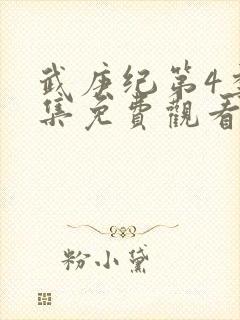 武庚纪第4季
集免費觀看
粉小黛